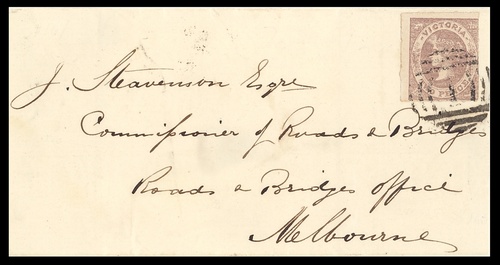 VICTORIA
J. Steavenson Esqre
Commissioner of Roads & Bridges
Roads & Bridges Office
Melbourne